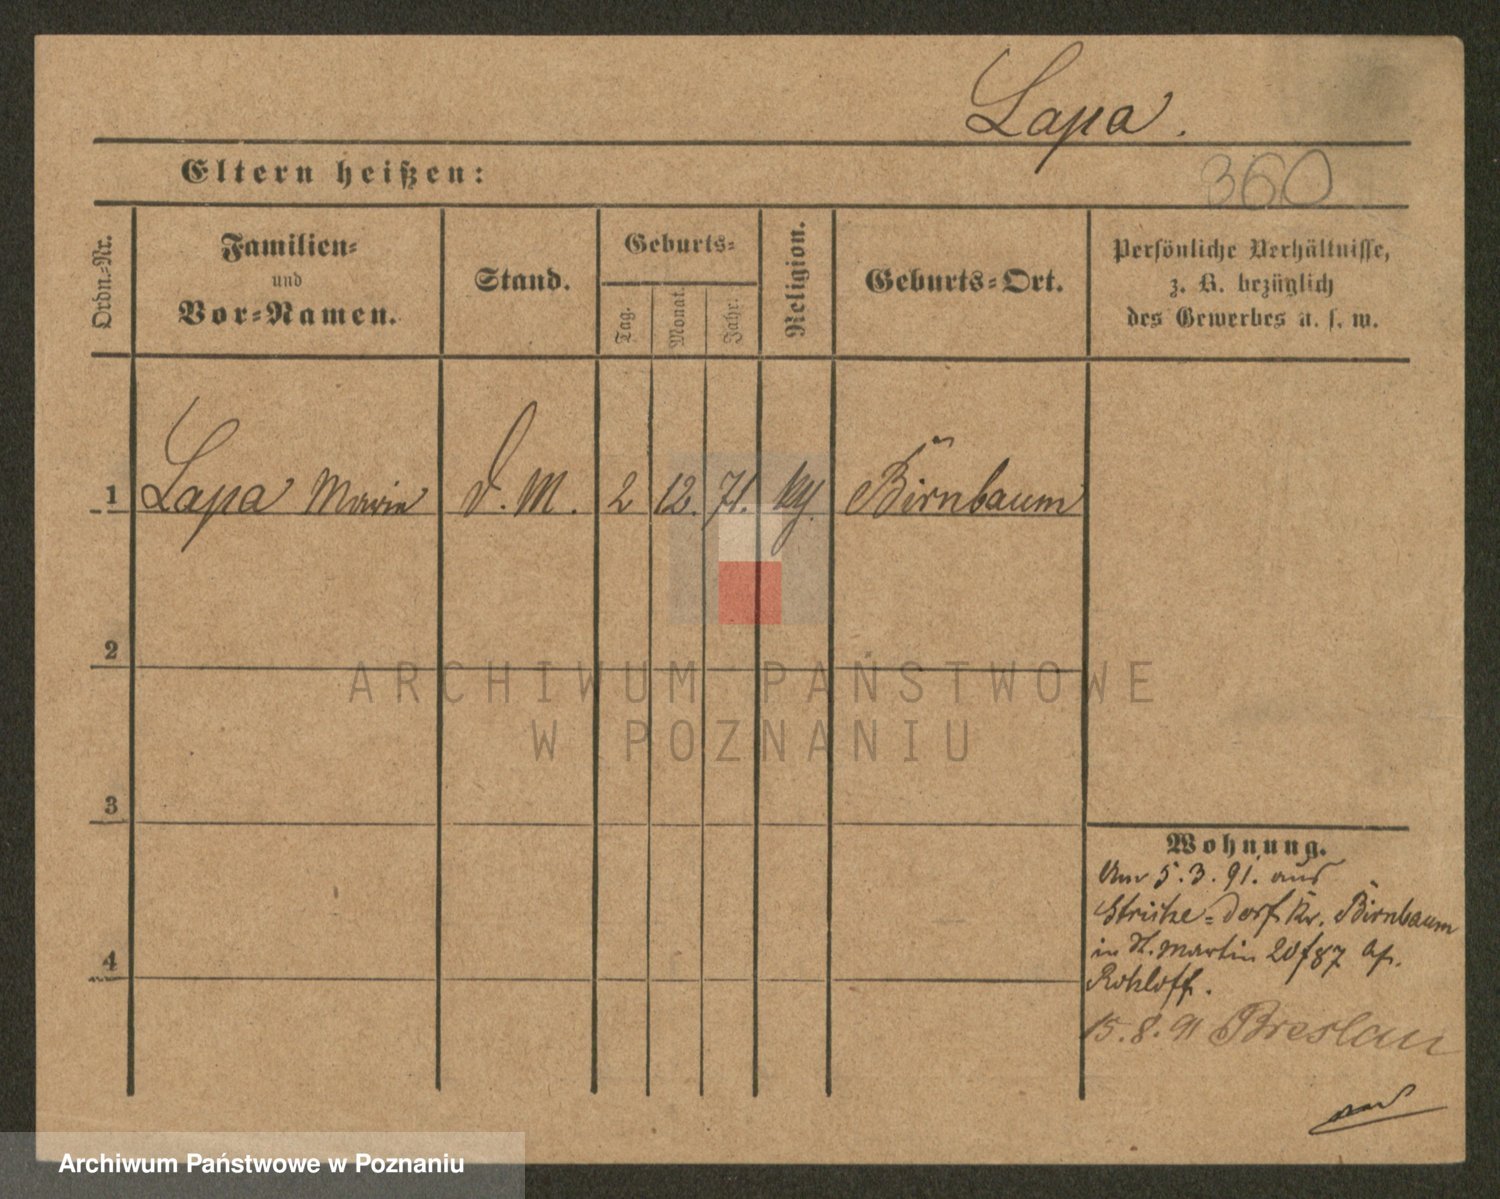 Lapa.
360
Eltern heißen:
Ordn.-Nr.
Familien-
und
Vor-Namen.
Stand.
Geburts-
Tag.
Monat.
Jahr.
Religion.
Geburts-Ort.
Persönliche Verhältnisse,
z. B. bezüglich
des Gewerbes u. s. w.
1 Lapa Maria D. M. 2 12. 71. Birnbaum
2
3
4
Wohnung.
Am 5.3.91. aus
Striche-Dorf Kr. Birnbaum
in St. Martin 20/87
Rohloff.
15.8.91 Breslau
ARCHIWUM PAŃSTWOWE
W POZNANIU
Archiwum Państwowe w Poznaniu